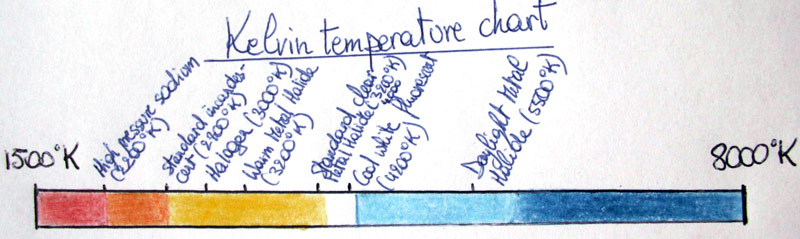 Kelvin temperature chart
1500°K
High pressure sodium
(2200°K)
Standard incandes-
cent (2700°K)
Halogen (3000°K)
Warm Metal Halide
(3200°K)
Standard clear
Metal Halide (3900°K)
4000
Cool white fluorescent
(4200°K)
Daylight Metal
Halide (5500°K)
8000°K